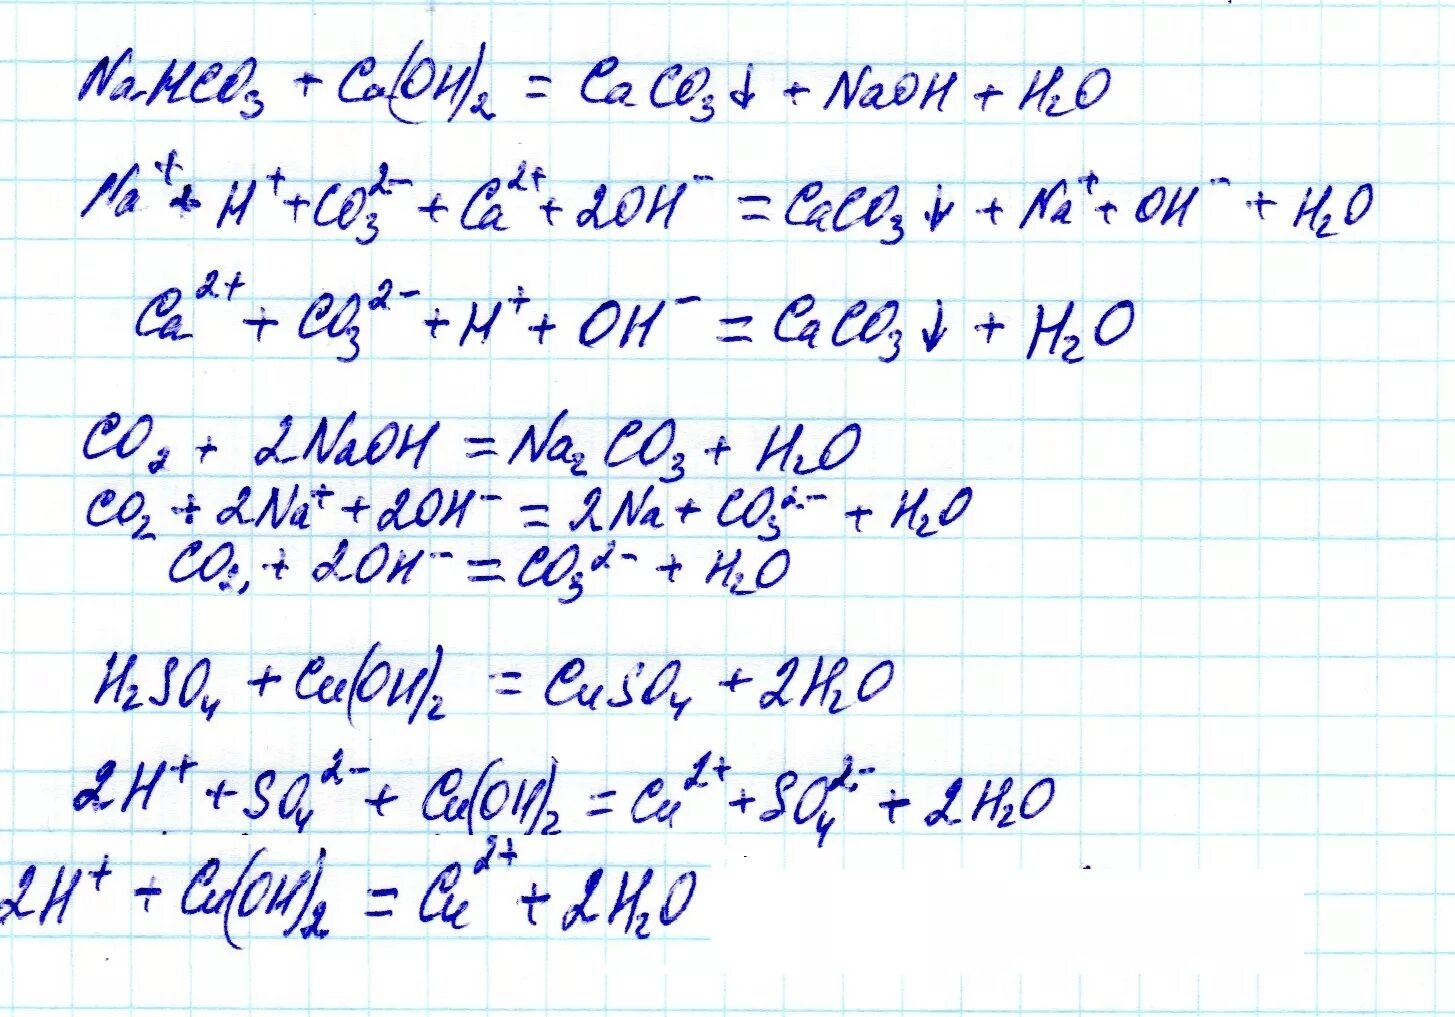 NaHCO₃ + Ca(OH)₂ = CaCO₃↓ + NaOH + H₂O
Na⁺ + H⁺ + CO₃²⁻ + Ca²⁺ + 2OH⁻ = CaCO₃↓ + Na⁺ + OH⁻ + H₂O
Ca²⁺ + CO₃²⁻ + H⁺ + OH⁻ = CaCO₃↓ + H₂O
CO₂ + 2NaOH = Na₂CO₃ + H₂O
CO₂ + 2Na⁺ + 2OH⁻ = 2Na + CO₃²⁻ + H₂O
CO₂ + 2OH⁻ = CO₃²⁻ + H₂O
H₂SO₄ + Cu(OH)₂ = CuSO₄ + 2H₂O
2H⁺ + SO₄²⁻ + Cu(OH)₂ = Cu²⁺ + SO₄²⁻ + 2H₂O
2H⁺ + Cu(OH)₂ = Cu²⁺ + 2H₂O